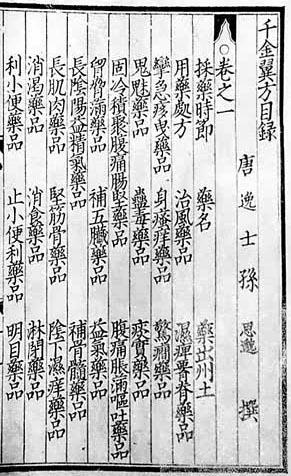 千金翼方目錄
唐逸士孫思邈撰
卷之一
採藥時節 藥名 藥出州土
用藥處方 治風藥品 濕痺腰脊藥品
攣急㿏曳藥品 身瘙痒藥品 驚癎藥品
鬼魅藥品 蠱毒藥品 痰實藥品
固冷積聚腹痛腸堅藥品 腹痛脹滿嘔吐藥品
胷脅滿藥品 補五臟藥品 益氣藥品
長陰陽益精氣藥品 補骨髓藥品
長肌肉藥品 堅筋骨藥品 陰下濕痒藥品
消渴藥品 消食藥品 淋閉藥品
利小便藥品 止小便利藥品 明目藥品